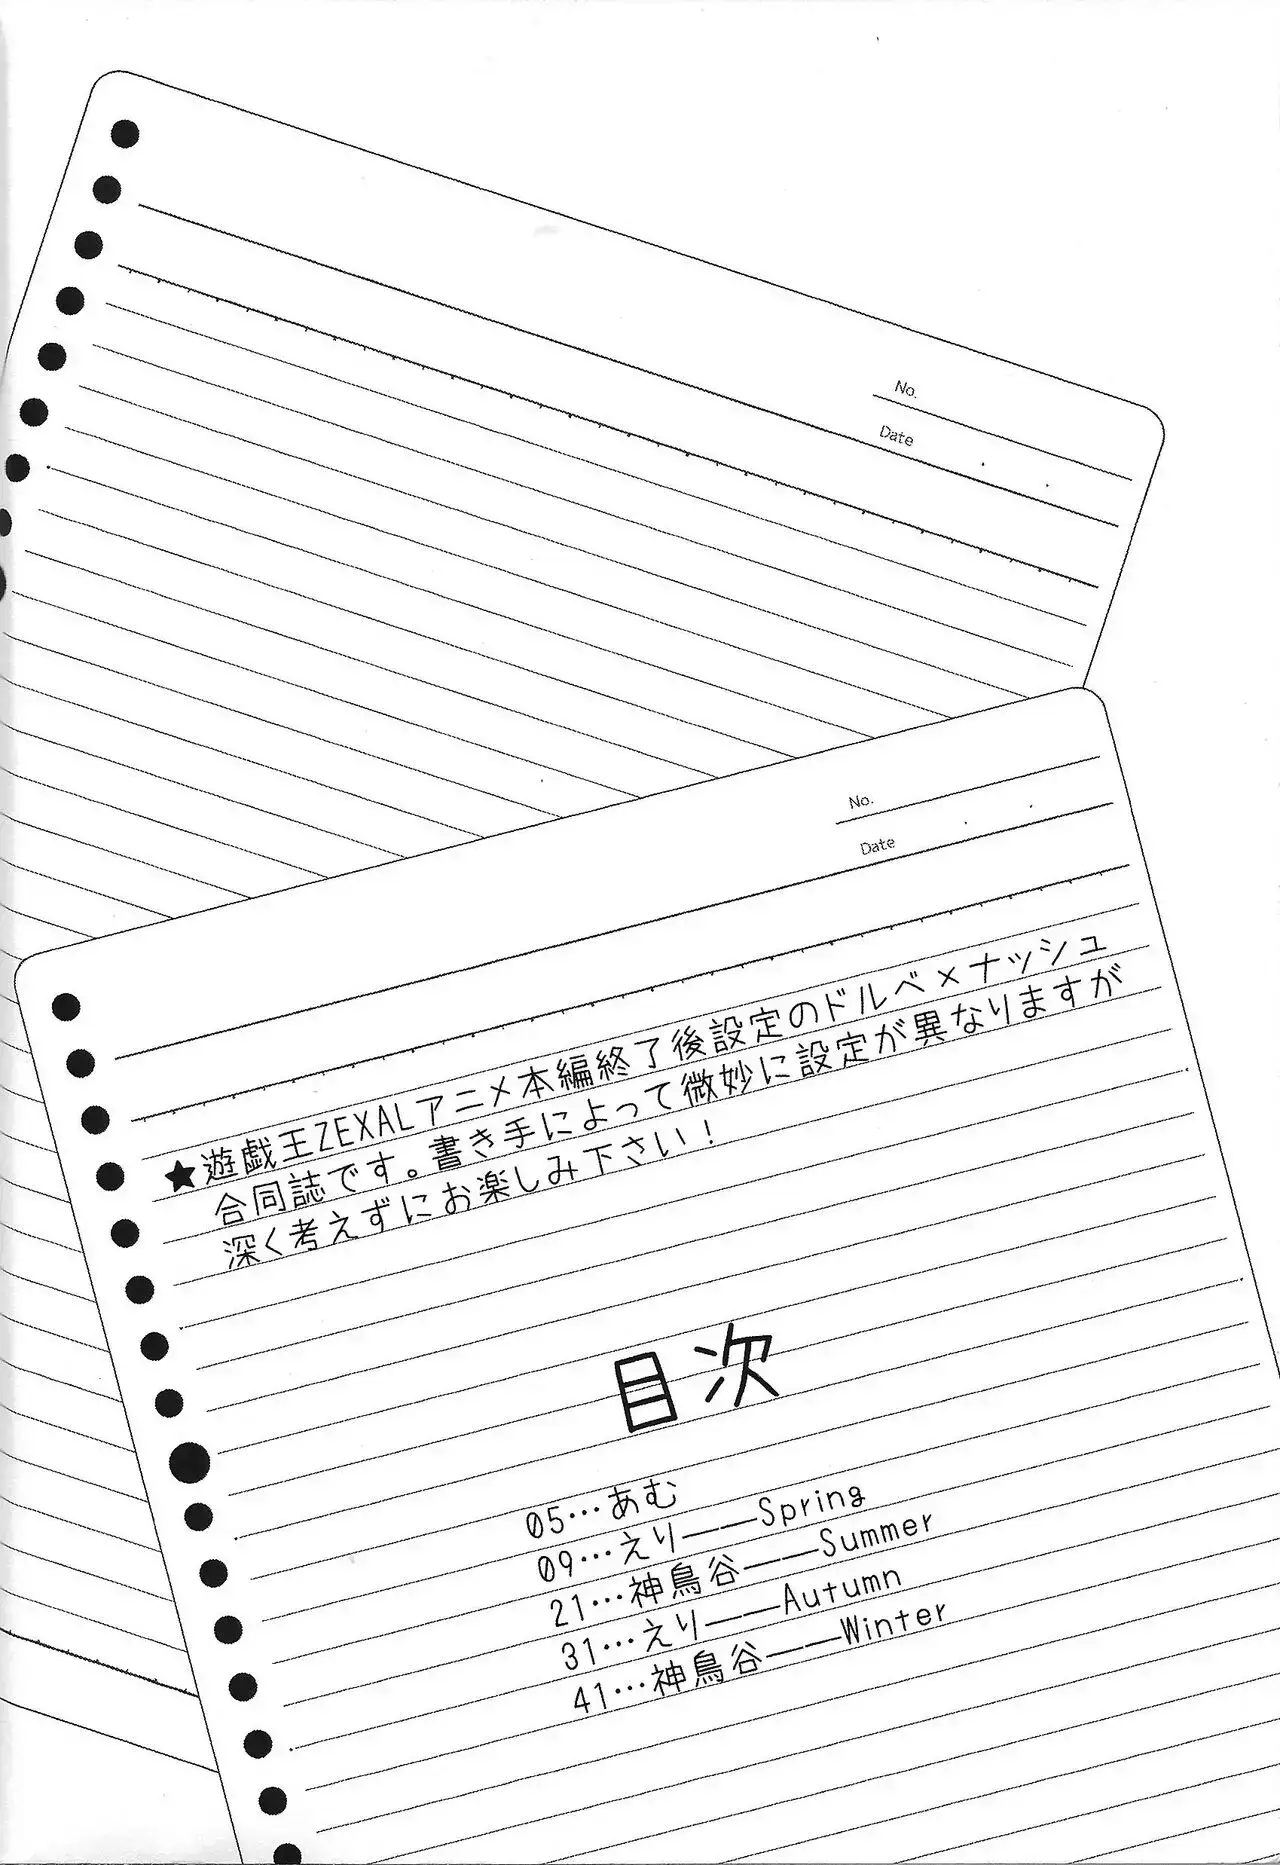 No.
Date
No.
Date
★遊戯王ZEXALアニメ本編終了後設定のドルベ×ナッシュ
合同誌です。書き手によって微妙に設定が異なりますが
深く考えずにお楽しみ下さい！
目次
05…あむ
09…えり——Spring
21…神鳥谷——Summer
31…えり——Autumn
41…神鳥谷——Winter